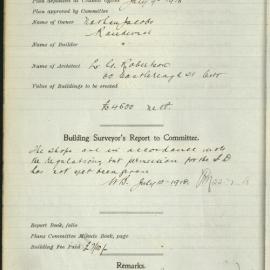 Plan approved by Committee
Name of Owner Nathan Jacobs
Randwick
Name of Builder "
Name of Architect G. Robertson
Castlereagh St City
Value of Buildings to be erected
£4600 nett.
Building Surveyor's Report to Committee.
The shops are in accordance with
the regulations but permission for the
has not yet been given
July 10 1918
Report Book, folio
Plans Committee Minute Book, page
Building Fee Paid
Remarks.